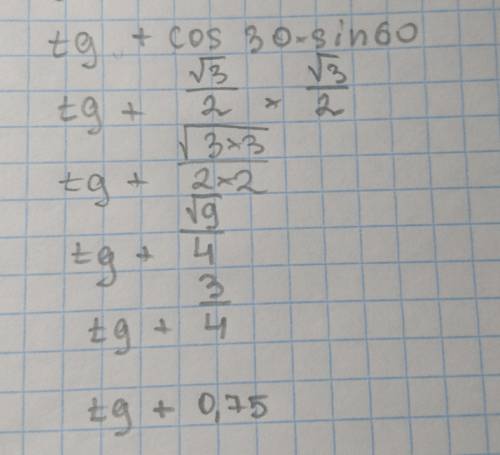 tg + cos 30·sin60
tg + √3/2 × √3/2
tg + √3×3/2×2
tg + √9/4
tg + 3/4
tg + 0,75